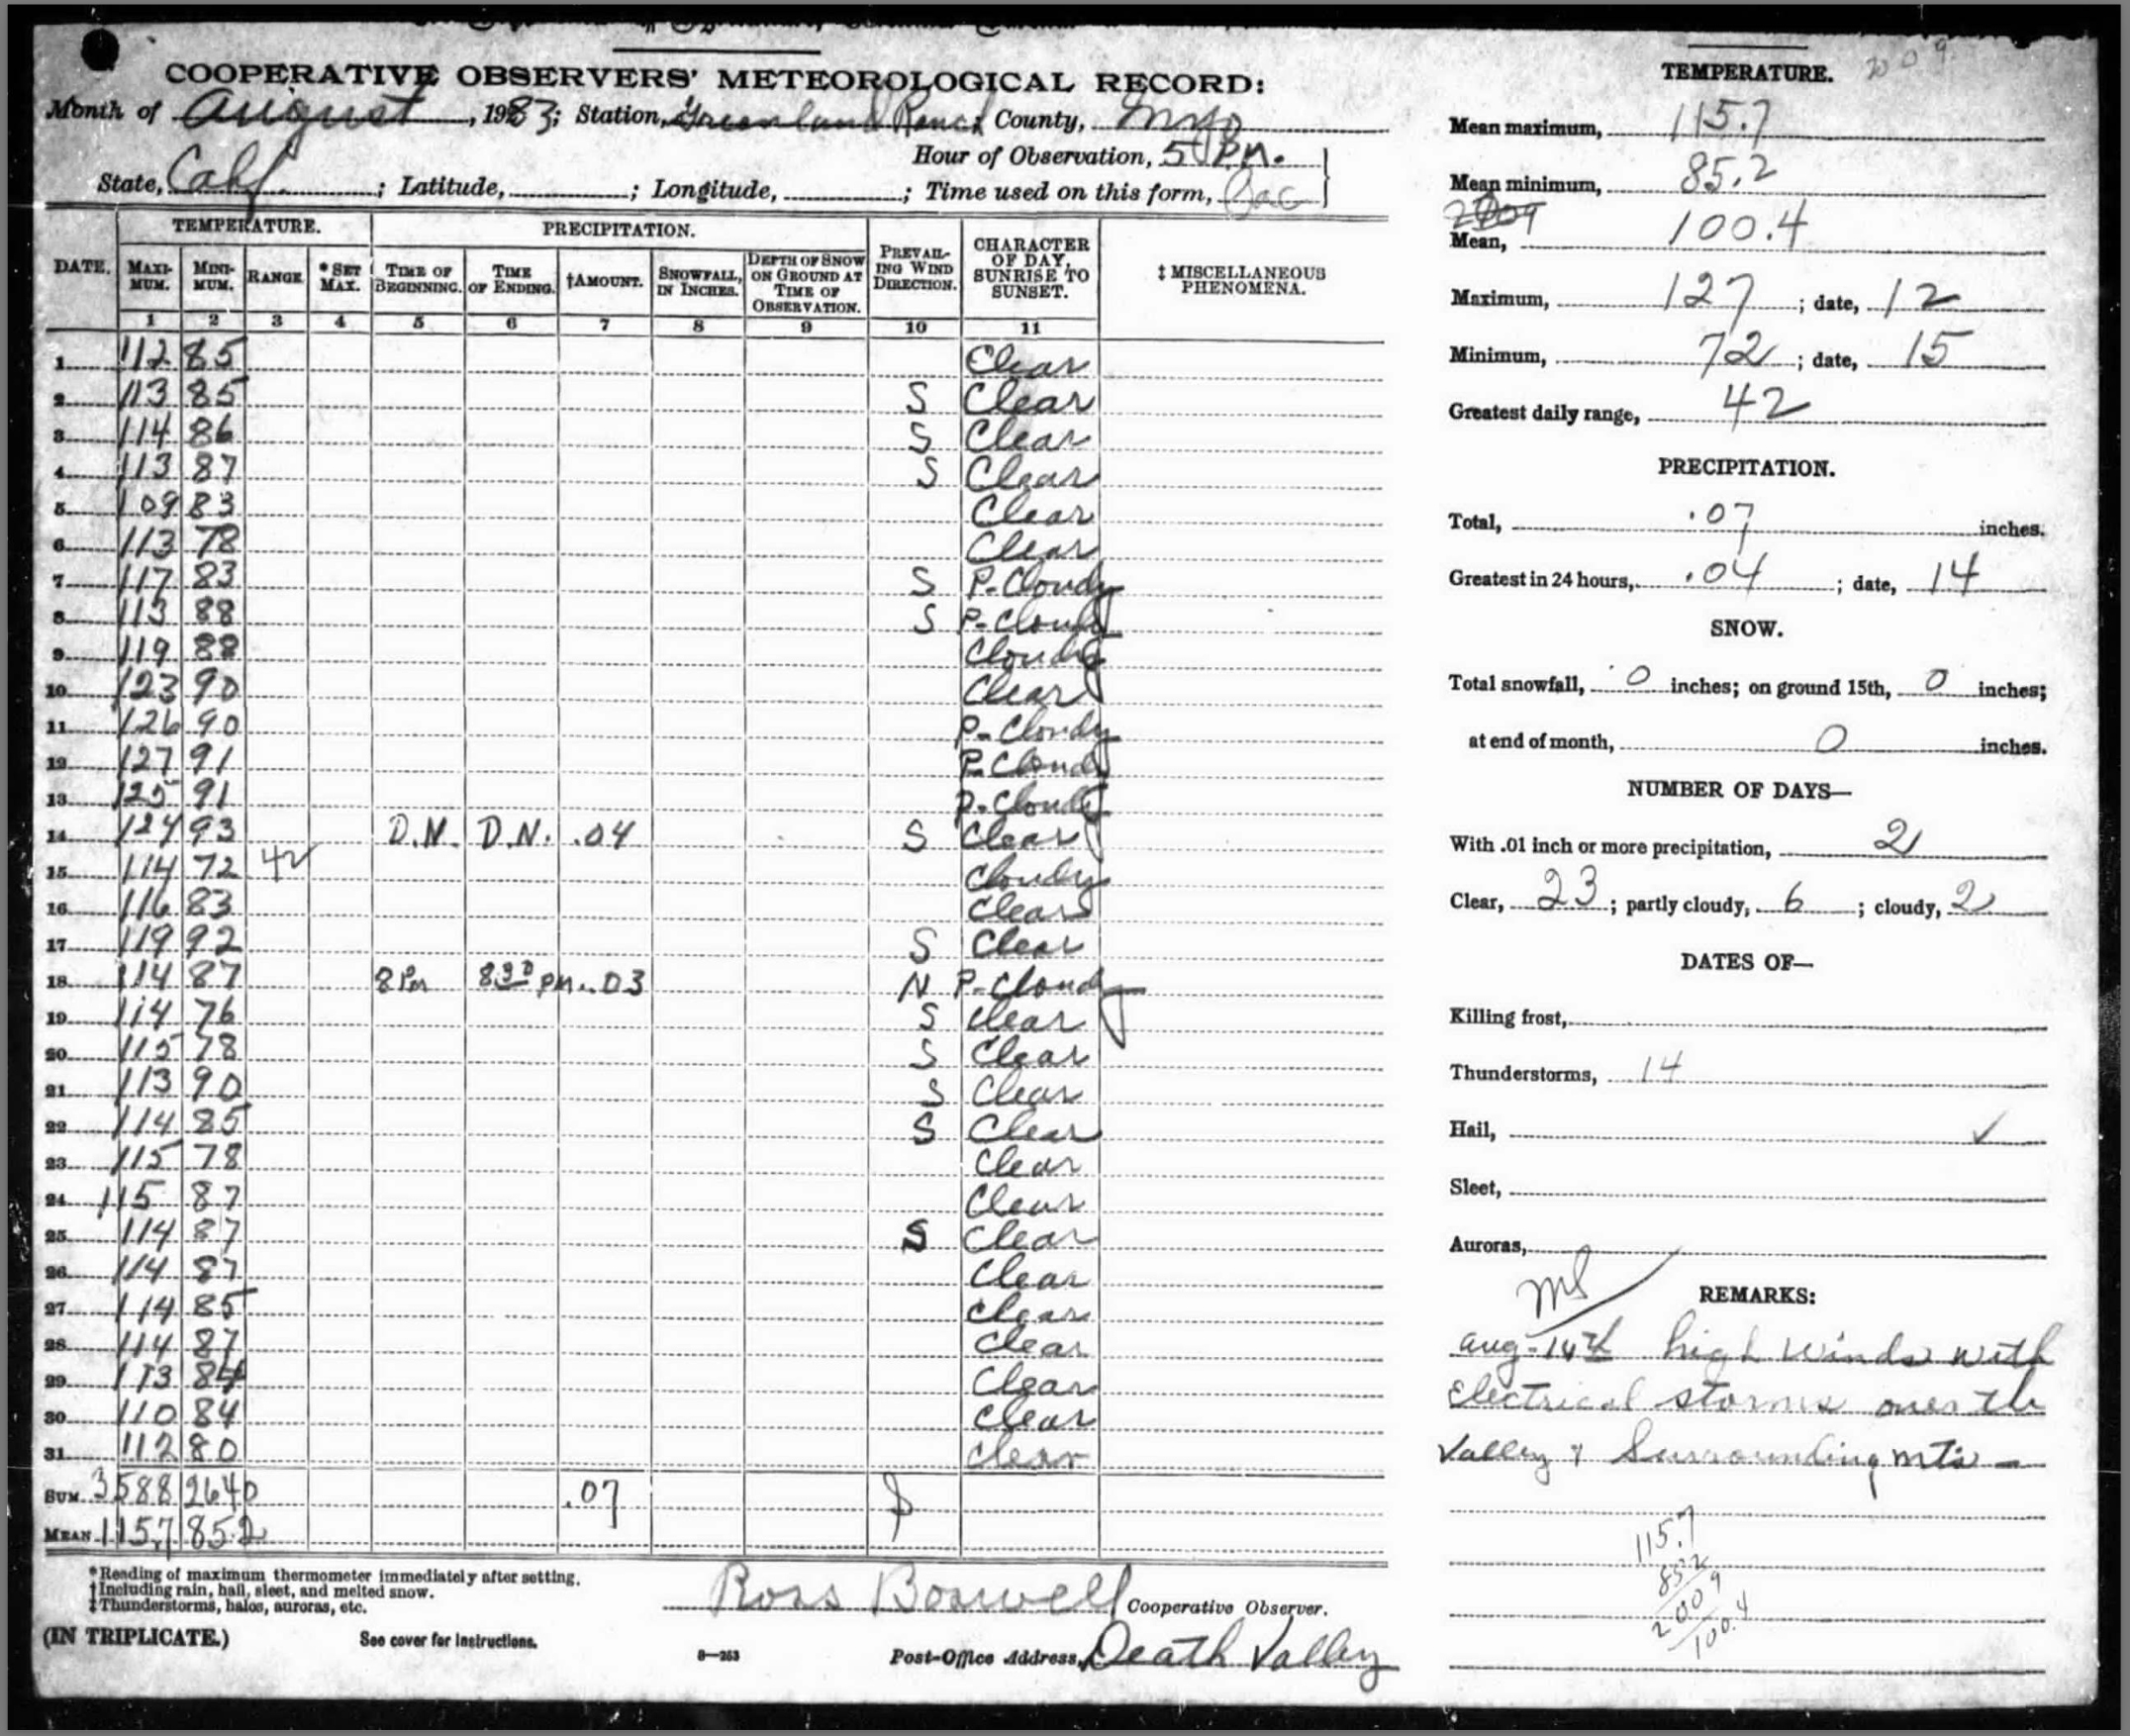 COOPERATIVE OBSERVERS' METEOROLOGICAL RECORD:
Month of August, 1933; Station, Greenland Ranch County, Inyo
Hour of Observation, 5 P.M.
State, Calif.; Latitude, ; Longitude, ; Time used on this form, Pac
DATE. TEMPERATURE. PRECIPITATION. PREVAILING WIND DIRECTION. CHARACTER OF DAY, SUNRISE TO SUNSET. ‡ MISCELLANEOUS PHENOMENA.
MAXIMUM. MINIMUM. RANGE *SET MAX. TIME OF BEGINNING. TIME OF ENDING. †AMOUNT. SNOWFALL, IN INCHES. DEPTH OF SNOW ON GROUND AT TIME OF OBSERVATION.
1 2 3 4 5 6 7 8 9 10 11
1 112 85 Clear
2 113 85 S Clear
3 114 86 S Clear
4 113 87 S Clear
5 109 83 Clear
6 113 78 Clear
7 117 83 S P-Cloudy
8 113 88 S P-Cloudy
9 119 88 Cloudy
10 123 90 Clear
11 126 90 P-Cloudy
12 127 91 P-Cloudy
13 125 91 P-Cloudy
14 124 93 D.N. D.N. .04 S Clear
15 114 72 42 Cloudy
16 116 83 Clear
17 119 92 S Clear
18 114 87 8 Pm 8 30 PM .03 N P-Cloudy
19 114 76 S Clear
20 115 78 S Clear
21 113 90 S Clear
22 114 85 S Clear
23 115 78 Clear
24 115 87 Clear
25 114 87 S Clear
26 114 87 Clear
27 114 85 Clear
28 114 87 Clear
29 113 84 Clear
30 110 84 Clear
31 112 80 Clear
SUM 3588 2640 .07 S
MEAN 115.7 85.2
*Reading of maximum thermometer immediately after setting.
†Including rain, hail, sleet, and melted snow.
‡Thunderstorms, halos, auroras, etc.
Ross Boswell Cooperative Observer.
(IN TRIPLICATE.) See cover for Instructions. 8—253 Post-Office Address, Death Valley
TEMPERATURE. 2009
Mean maximum, 115.7
Mean minimum, 85.2
2009
Mean, 100.4
Maximum, 127; date, 12
Minimum, 72; date, 15
Greatest daily range, 42
PRECIPITATION.
Total, .07 inches.
Greatest in 24 hours, .04; date, 14
SNOW.
Total snowfall, 0 inches; on ground 15th, 0 inches;
at end of month, 0 inches.
NUMBER OF DAYS—
With .01 inch or more precipitation, 2
Clear, 23; partly cloudy, 6; cloudy, 2
DATES OF—
Killing frost,
Thunderstorms, 14
Hail, ✓
Sleet,
Auroras,
REMARKS:
Aug-14th high winds with
electrical storms over the
Valley & Surrounding mts —
115.7
85.2
2009
100.4